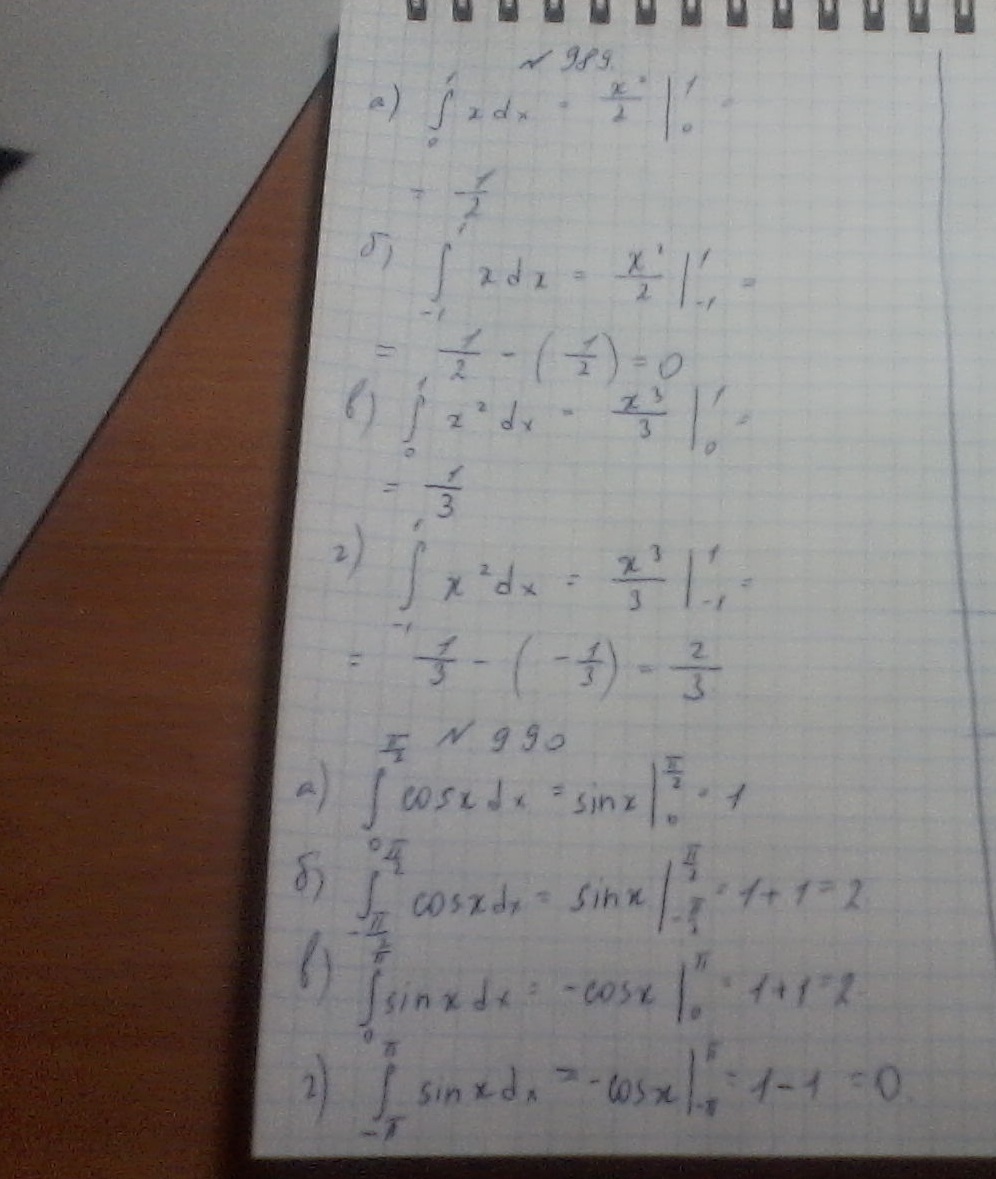 № 989.
а) ∫₀¹ x dx = x²/2 |₀¹ =
= 1/2
б) ∫₋₁¹ x dx = x²/2 |₋₁¹ =
= 1/2 - (1/2) = 0
в) ∫₀¹ x² dx = x³/3 |₀¹ =
= 1/3
г) ∫₋₁¹ x² dx = x³/3 |₋₁¹ =
= 1/3 - (-1/3) = 2/3
№ 990
а) ∫₀^(π/2) cosx dx = sinx |₀^(π/2) = 1
б) ∫_(-π/2)^(π/2) cosx dx = sinx |_(-π/2)^(π/2) = 1+1=2
в) ∫₀^π sinx dx = -cosx |₀^π = 1+1=2
г) ∫_(-π)^π sinx dx = -cosx |_(-π)^π = 1-1 = 0.